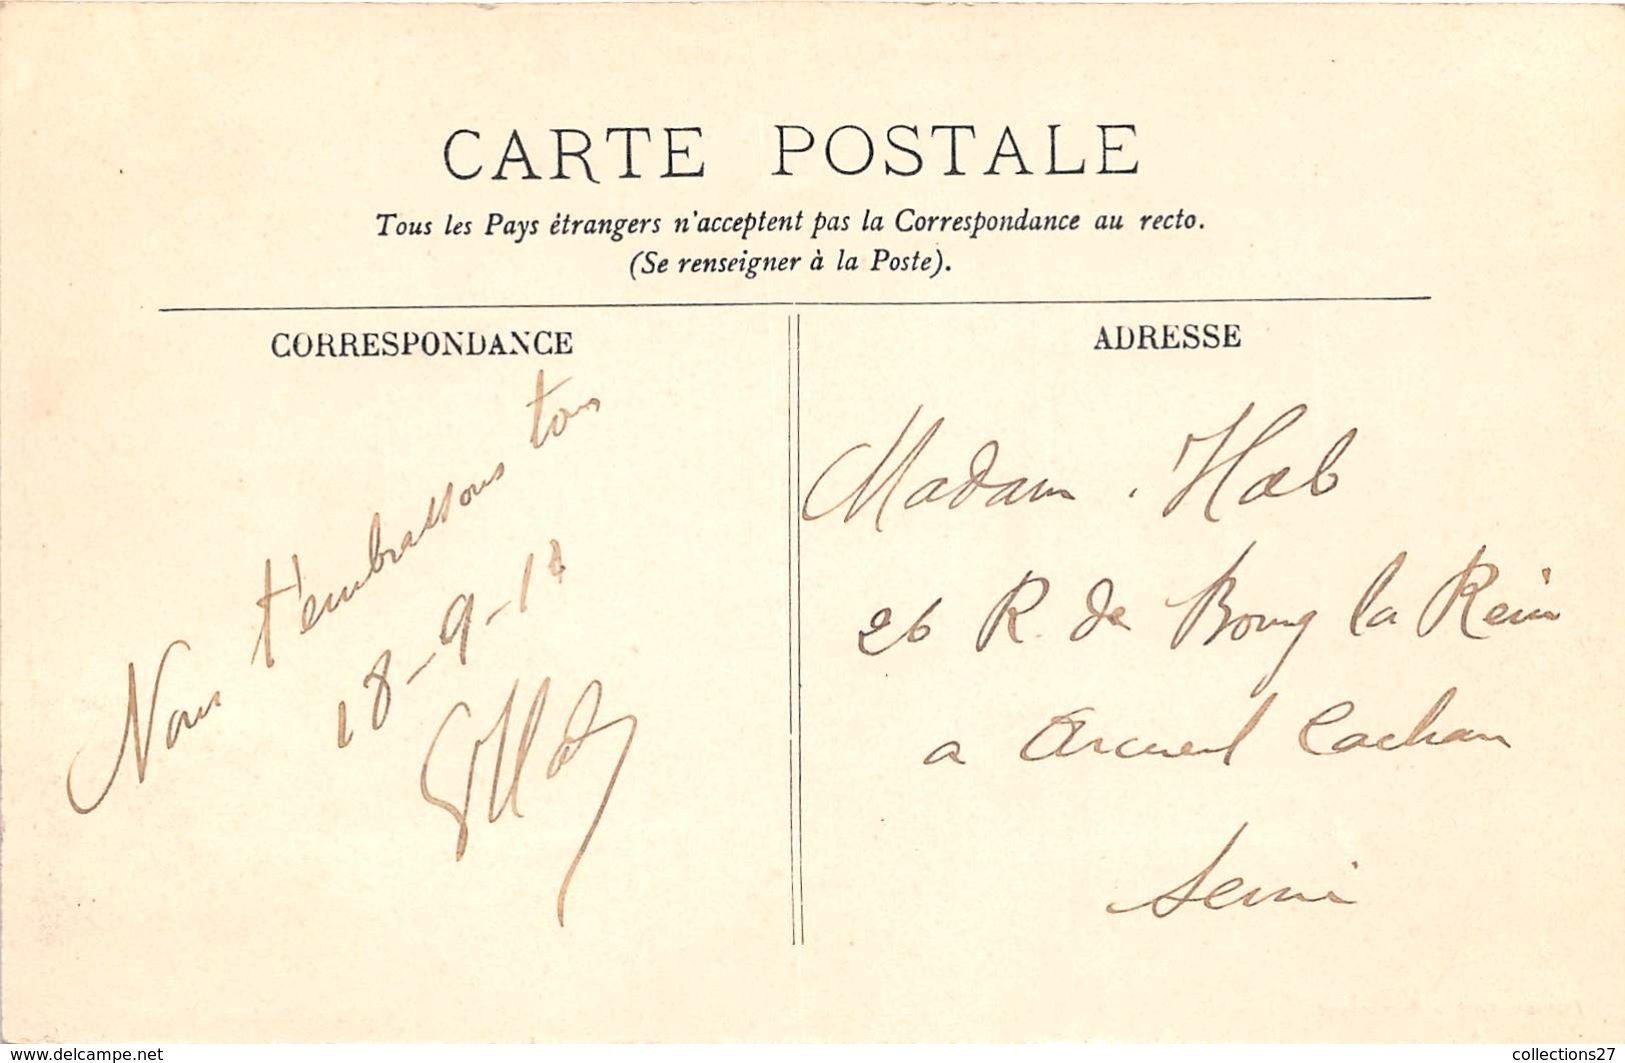 CARTE POSTALE
Tous les Pays étrangers n'acceptent pas la Correspondance au recto.
(Se renseigner à la Poste).
CORRESPONDANCE
Nous t'embrassons tous
18-9-1
ADRESSE
Madam. Hab
26 R. de Bourg la Rein
a Arcueil Cachan
Seine
www.delcampe.net
collections27